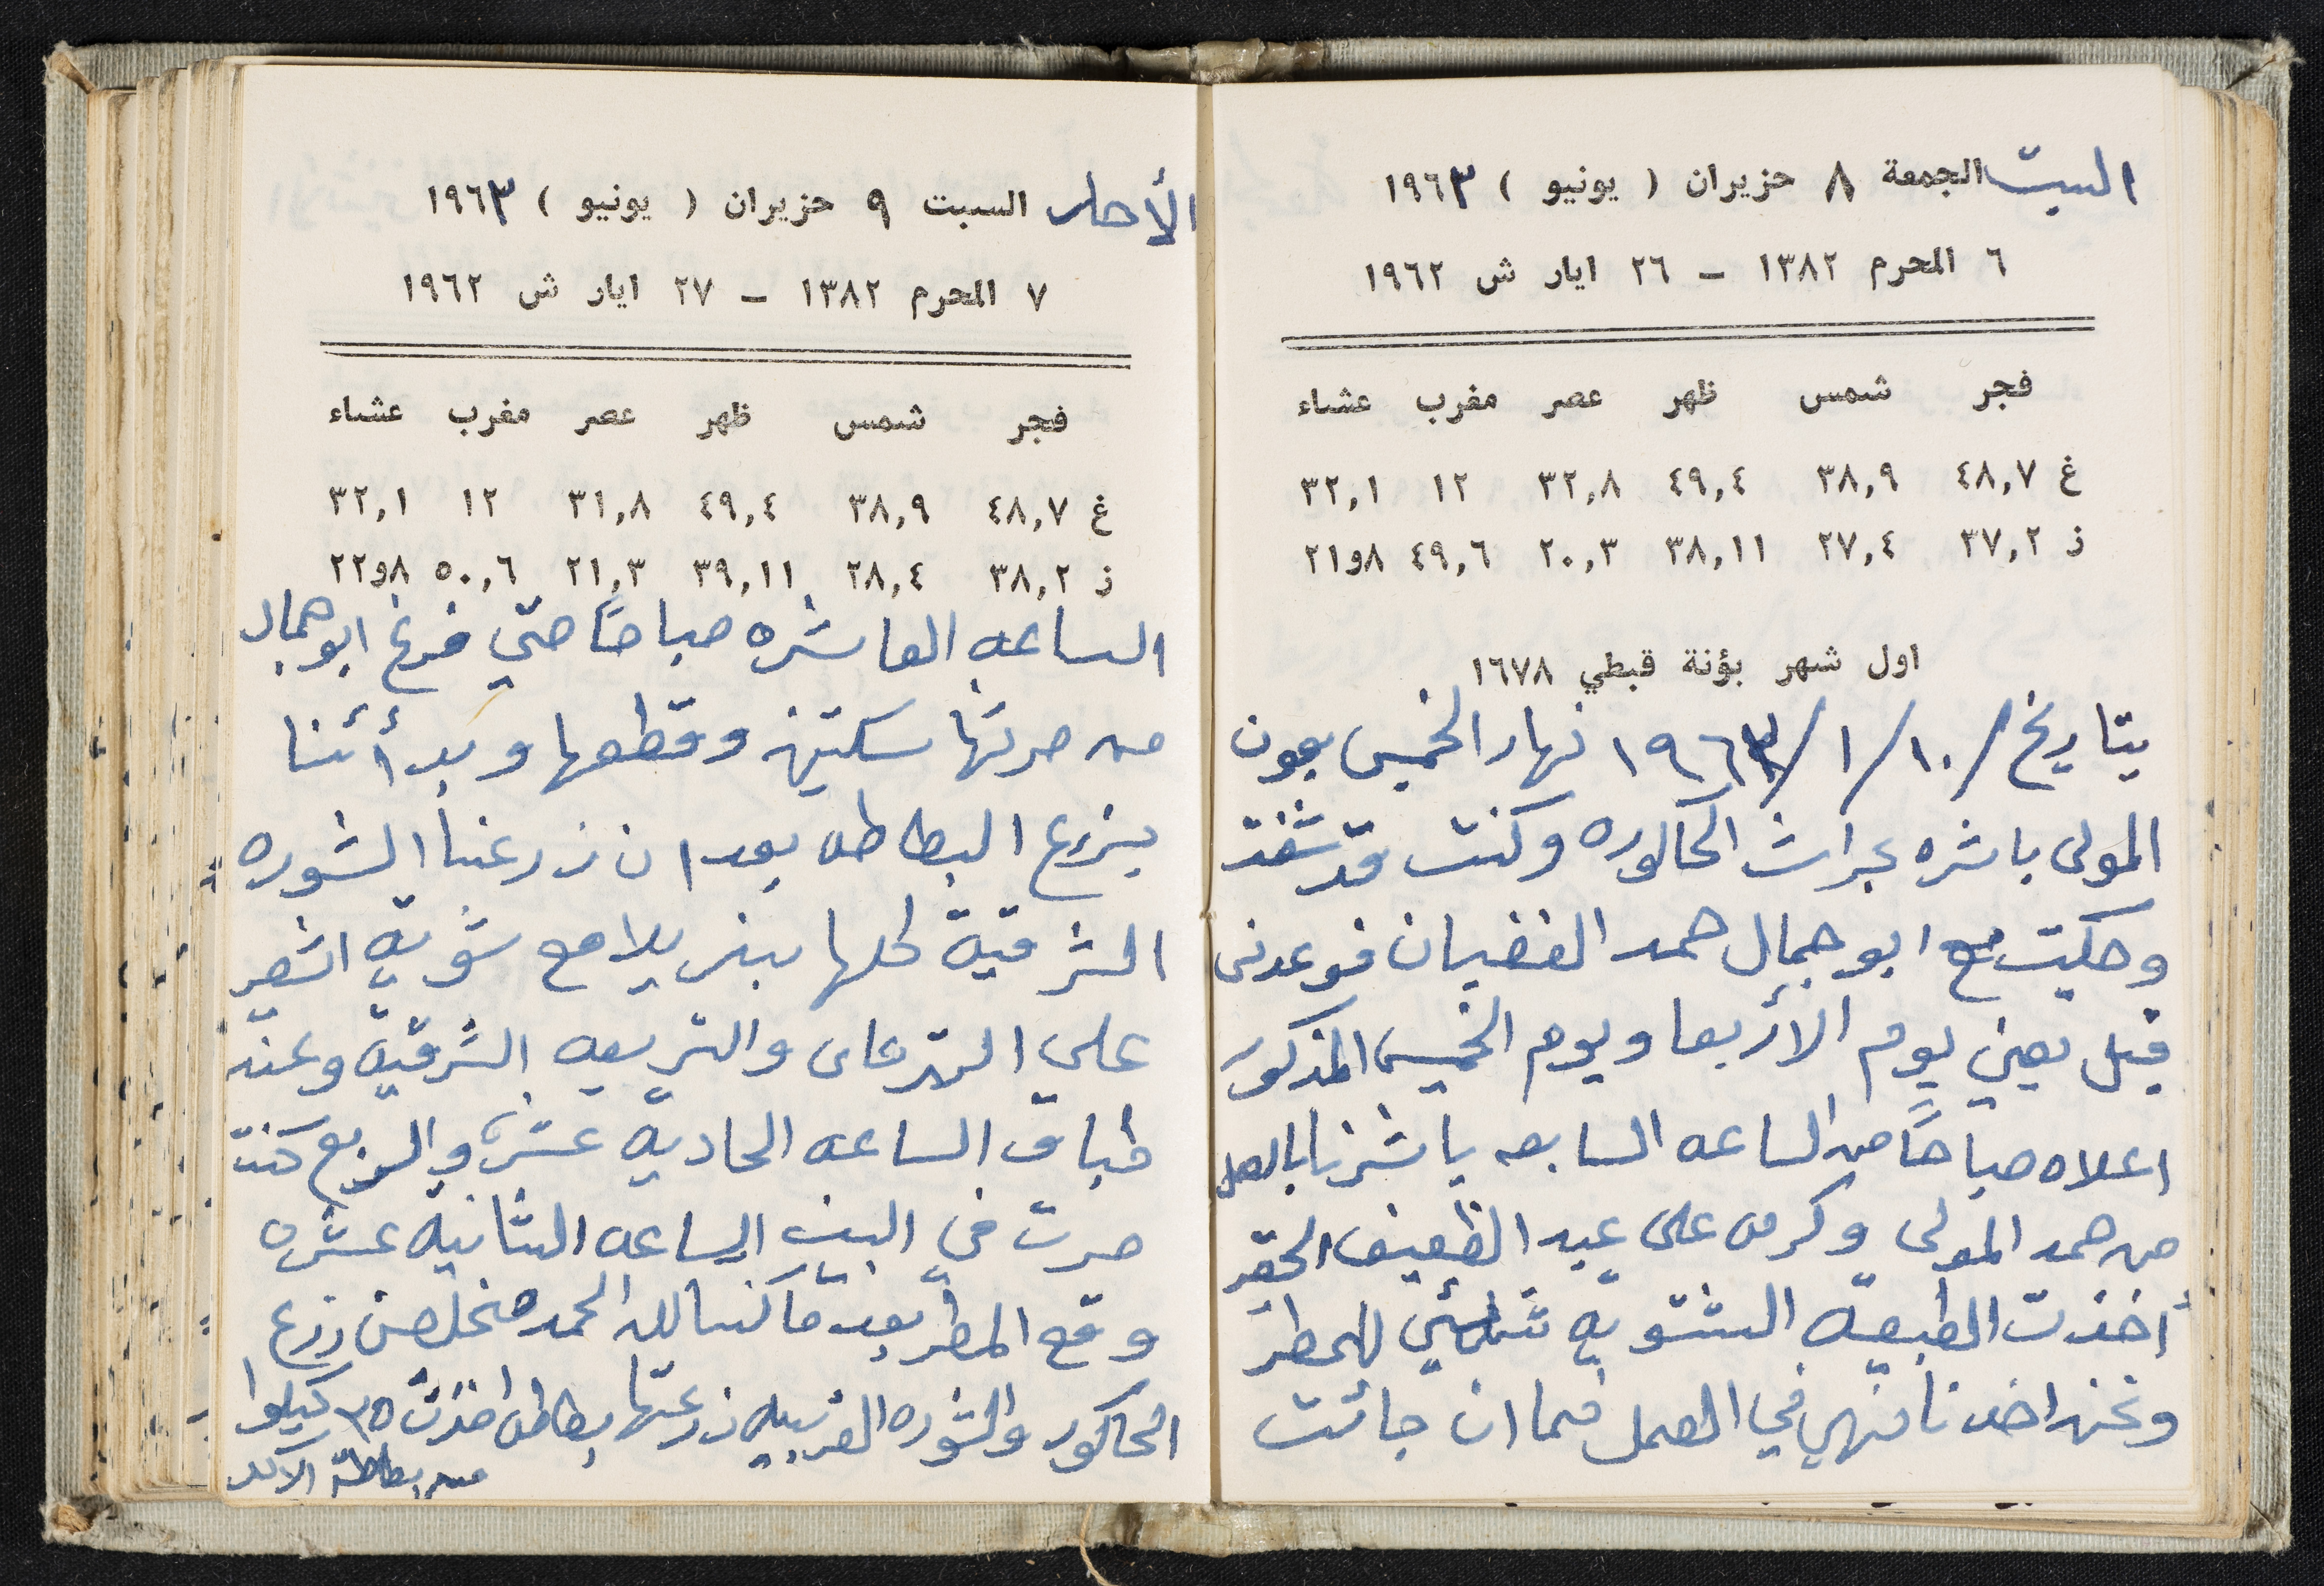 السبت الجمعة ٨ حزيران ( يونيو ) ١٩٦٣
٦ المحرم ١٣٨٢ – ٢٦ ايار ش ١٩٦٢
فجر شمس ظهر عصر مغرب عشاء
غ ٤٨,٧ ٣٨,٩ ٤٩,٤ ٣٢,٨ ١٢ ٣٢,١
ز ٣٧,٢ ٢٧,٤ ٣٨,١١ ٢٠,٣ ٤٩,٦ ٨و٢١
اول شهر بؤنة قبطي ١٦٧٨
بتاريخ /١٠/١/١٩٦٣ نهار الخميس بعون
المولى باشره بحراث الحاكوره وكنت قد شفت
وحكيت مع ابو جمال حمد الغضبان فوعدني
قبل يعني يوم الأربعا ويوم الخميس المذكور
اعلاه صباحاً من الساعه السابعه باشرنا بالعمل
من حمد المولى وكرمه على عبد الظعيف الحقير
أخذت الطبيعه الشتويه للمطر
ونحن اخدنا في العمل فما ان جائت
الأحد السبت ٩ حزيران ( يونيو ) ١٩٦٣
٧ المحرم ١٣٨٢ – ٢٧ ايار ش ١٩٦٢
فجر شمس ظهر عصر مغرب عشاء
غ ٤٨,٧ ٣٨,٩ ٤٩,٤ ٣١,٨ ١٢ ٣٢,١
ز ٣٨,٢ ٢٨,٤ ٣٩,١١ ٢١,٣ ٥٠,٦ ٨و٢٢
الساعه العاشره صباحاً حتي فرغ ابو جمال
من حرتها سكتين وقطعها وبدأنا
بزرع البطاطه بعد ان زرعنا الشوره
الشرقية كلها بزيلا مع شوية اشعير
علي والتربيعه الشرقية وعند
طباق الساعه الحاديه عشرة والربع كنت
صرت في البيت الساعه الثانيه عشره
وقع المطر بعد ما كنا لله الحمد مخلصين زرع
الحاكور والشوره الغربيه زرعتها بطاطه اخذت ٣٥ كيلوا
من بطاطة الاكل